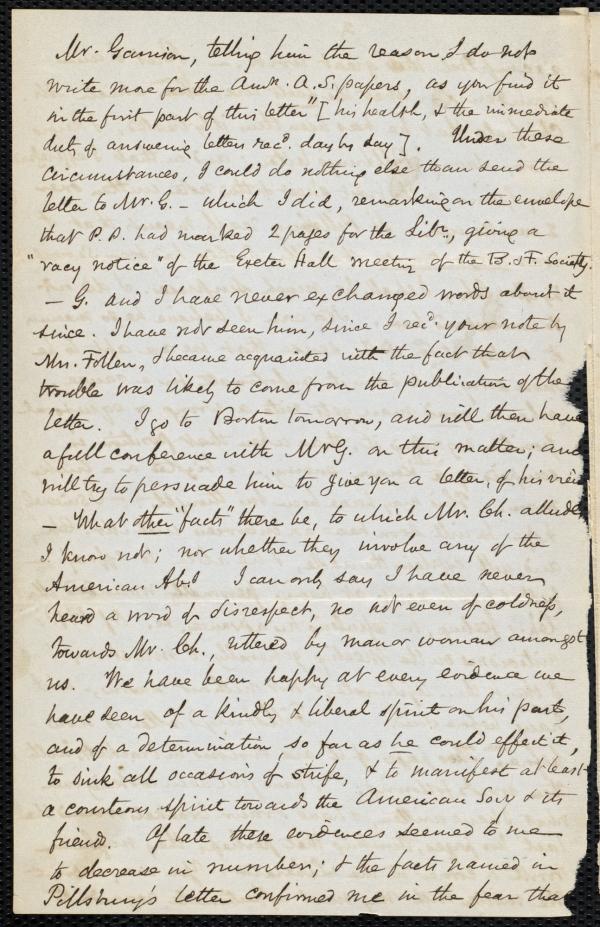 Mr. Garrison, telling him the reason I do not
write more for the Amn. A. S. papers, as you find it
in the first part of this letter" [his health, & the immediate
duty of answering letters recd. day by day]. Under these
circumstances, I could do nothing else than send the
letter to Mr. G. – which I did, remarking on the envelope
that P. P. had marked 2 pages for the Libr., giving a
"racy notice" of the Exeter Hall meeting of the B. & F. Society.
– G. and I have never exchanged words about it
since. I have not seen him, since I recd. your note by
Mrs. Follen, & became acquainted with the fact that
trouble was likely to come from the publication of the
letter. I go to Boston tomorrow, and will then have
a full conference with Mr G. on this matter; and
will try to persuade him to give you a letter, of his
– What other "facts" there be, to which Mr. Ch. alludes
I know not; nor whether they involve any of the
American Abs. I can only say I have never
heard a word of disrespect, no not even of coldness,
towards Mr. Ch., uttered by man or woman amongst
us. We have been happy at every evidence we
have seen of a kindly & liberal spirit on his part,
and of a determination, so far as he could effect it,
to sink all occasions of strife, & to manifest at least
a courteous spirit towards the American Soc. & its
friends. Of late these evidences seemed to me
to decrease in number; & the facts named in
Pillsbury's letter confirmed me in the fear that